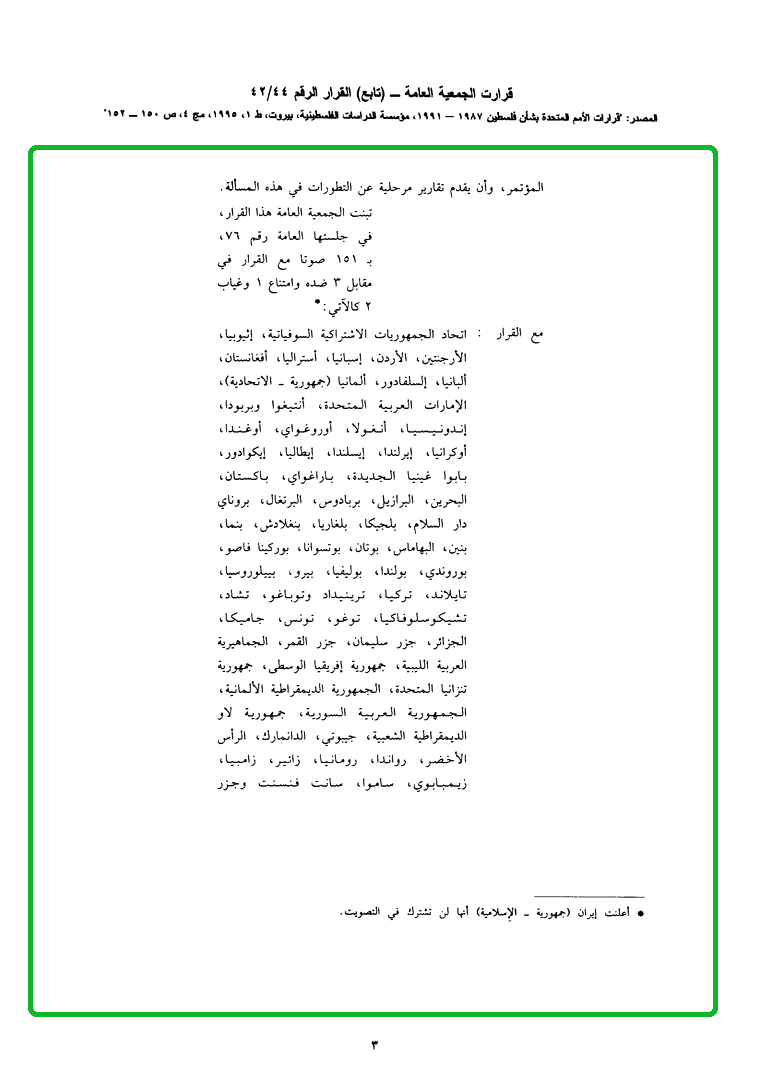 قرارت الجمعية العامة ــ (تابع) القرار الرقم ٤٢/٤٤
المصدر: "قرارات الأمم المتحدة بشأن فلسطين ١٩٨٧ – ١٩٩١، مؤسسة الدراسات الفلسطينية، بيروت، ط ١، ١٩٩٥، مج ٤، ص ١٥٠ ــ ١٥٢"
المؤتمر، وأن يقدم تقارير مرحلية عن التطورات في هذه المسألة.
تبنت الجمعية العامة هذا القرار،
في جلستها العامة رقم ٧٦،
بـ ١٥١ صوتا مع القرار في
مقابل ٣ ضده وامتناع ١ وغياب
٢ كالآتي:*
مع القرار : اتحاد الجمهوريات الاشتراكية السوفياتية، إثيوبيا،
الأرجنتين، الأردن، إسبانيا، أستراليا، أفغانستان،
ألبانيا، إلسلفادور، ألمانيا (جمهورية ـ الاتحادية)،
الإمارات العربية المتحدة، أنتيغوا وبربودا،
إندونيسيا، أنغولا، أوروغواي، أوغندا،
أوكرانيا، إيرلندا، إيسلندا، إيطاليا، إيكوادور،
بابوا غينيا الجديدة، باراغواي، باكستان،
البحرين، البرازيل، بربادوس، البرتغال، بروناي
دار السلام، بلجيكا، بلغاريا، بنغلادش، بنما،
بنين، البهاماس، بوتان، بوتسوانا، بوركينا فاصو،
بوروندي، بولندا، بوليفيا، بيرو، بييلوروسيا،
تايلاند، تركيا، ترينيداد وتوباغو، تشاد،
تشيكوسلوفاكيا، توغو، تونس، جاميكا،
الجزائر، جزر سليمان، جزر القمر، الجماهيرية
العربية الليبية، جمهورية إفريقيا الوسطى، جمهورية
تنزانيا المتحدة، الجمهورية الديمقراطية الألمانية،
الجمهورية العربية السورية، جمهورية لاو
الديمقراطية الشعبية، جيبوتي، الدانمارك، الرأس
الأخضر، رواندا، رومانيا، زائير، زامبيا،
زيمبابوي، ساموا، سانت فنسنت وجزر
* أعلنت إيران (جمهورية ـ الإسلامية) أنها لن تشترك في التصويت.
٣